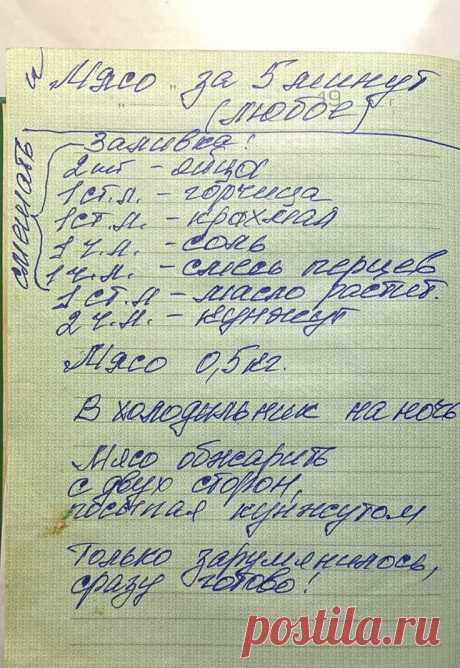 и Мясо за 5 минут
" " 19 г.
(любое)
смешать
Заливка:
2 шт - яйца
1 ст.л. - горчица
1 ст.л. - крахмал
1 ч.л. - соль
1 ч.л. - смесь перцев
1 ст.л - масло растит.
2 ч.л. - кунжут
Мясо 0,5 кг.
В холодильник на ночь
Мясо обжарить
с двух сторон,
посыпая кунжутом
Только зарумянилось,
сразу готово!
postila.ru